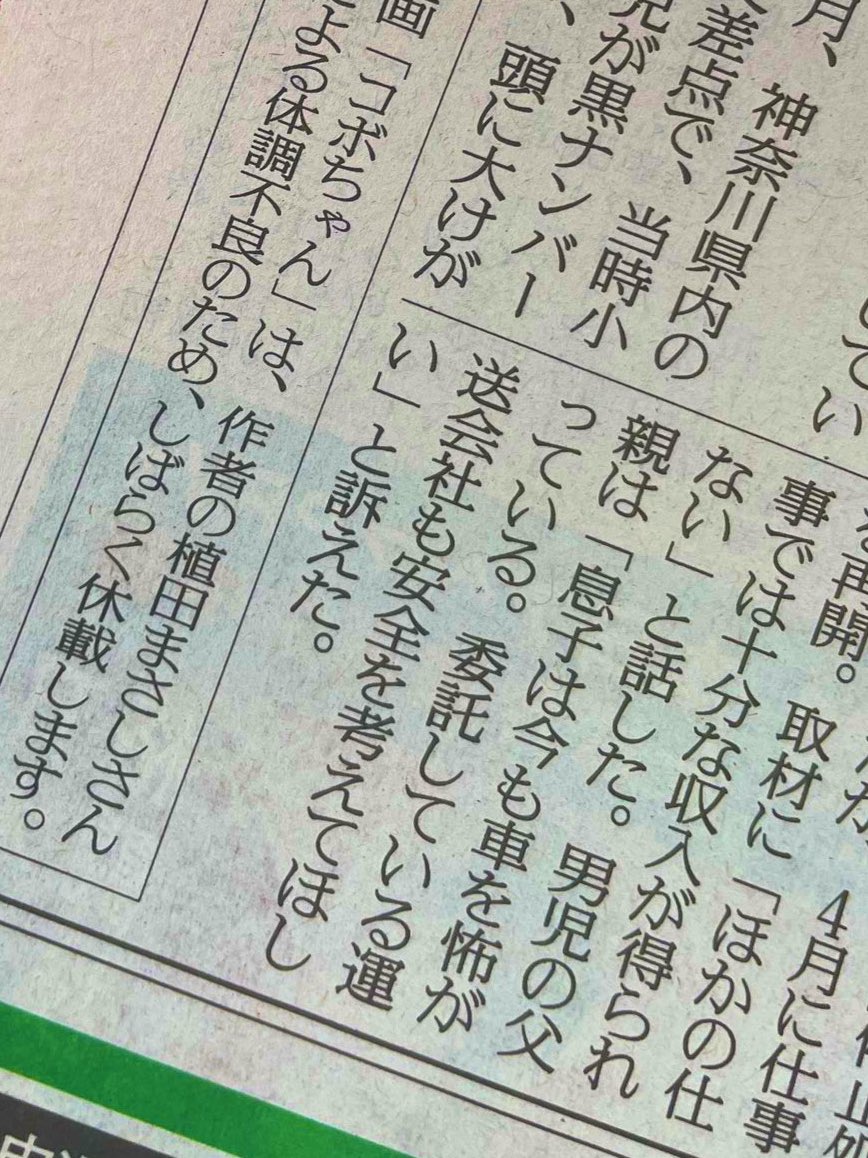 してい
月、神奈川県内の
差点で、当時小
児が黒ナンバー
、頭に大けが
4月に仕事
再開。取材に「ほかの仕
事では十分な収入が得られ
ない」と話した。男児の父
親は「息子は今も車を怖が
っている。委託している運
送会社も安全を考えてほし
い」と訴えた。
画「コボちゃん」は、作者の植田まさしさん
よる体調不良のため、しばらく休載します。